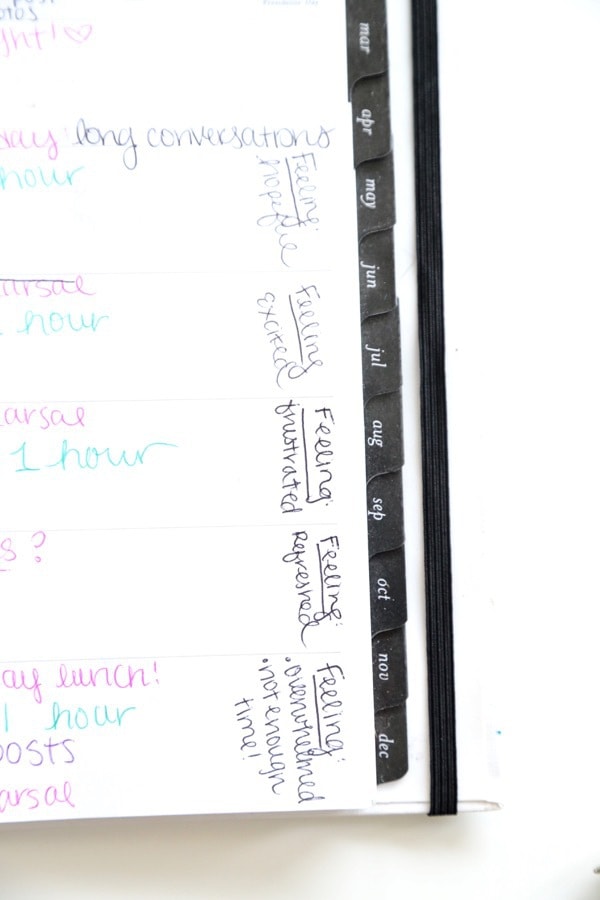 ght! ♡
day: long conversations
hour
Feeling:
hopeful
arsal
1 hour
Feeling
Excited
arsal
1 hour
Feeling:
frustrated
s?
Feeling:
Refreshed
ay lunch!
1 hour
posts
arsal
Feeling:
•overwhelmed
•not enough
time!
mar
apr
may
jun
jul
aug
sep
oct
nov
dec